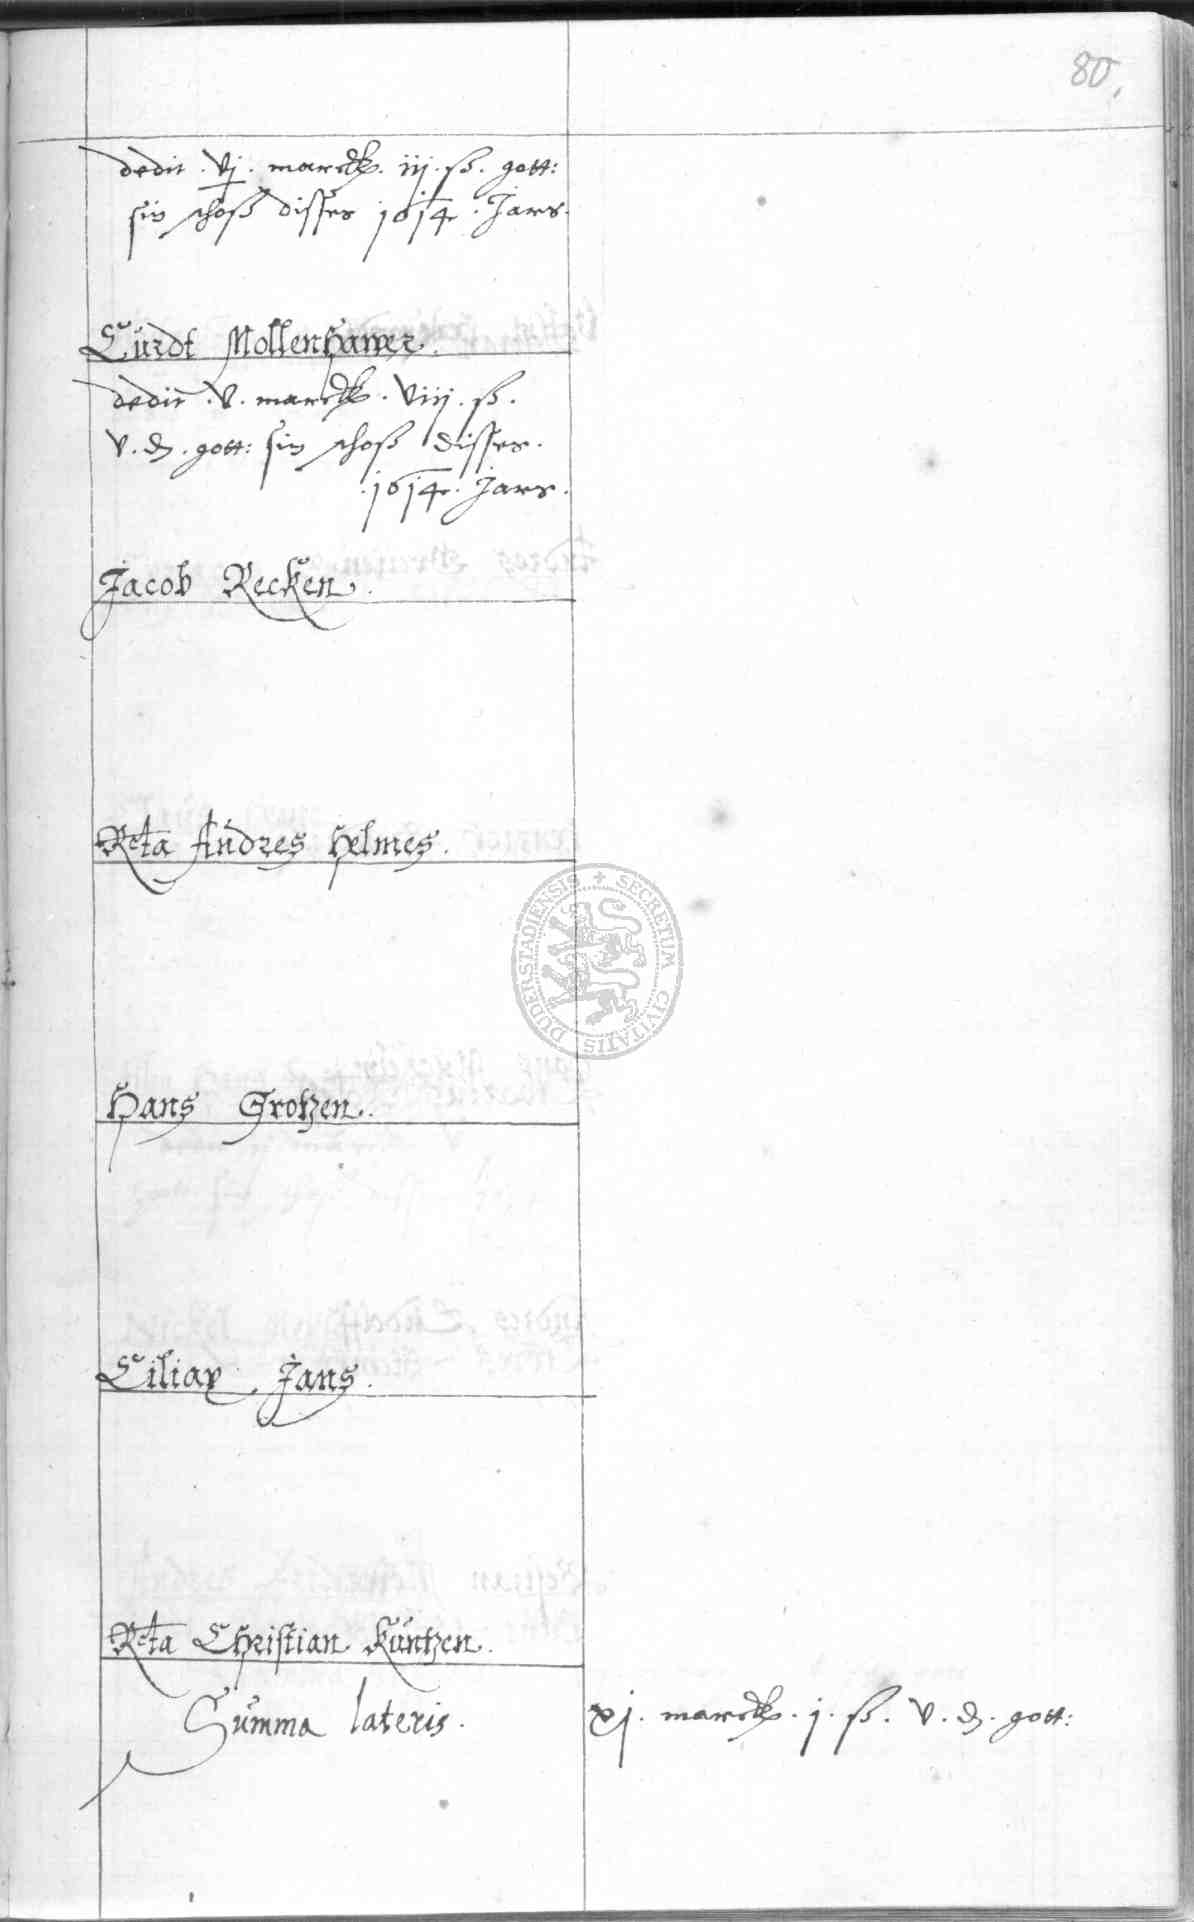 80.
dedit . vj . marck . iij . ß . gott:
sin schoß disses 1614 . Jars .
Curdt Mollenhawer .
dedit . v . marck . viij . ß .
v . ₰ . gott: sin schoß disses .
. 1614 . Jars .
Jacob Recken .
Rcta Andres Helmes .
Hans Grotzen .
Ciliax Jans .
Rcta Christian Kuntzen .
Summa lateris .
xj . marck . j . ß . v . ₰ . gott:
SECRETUM CIVITATIS DUDERSTADIENSIS